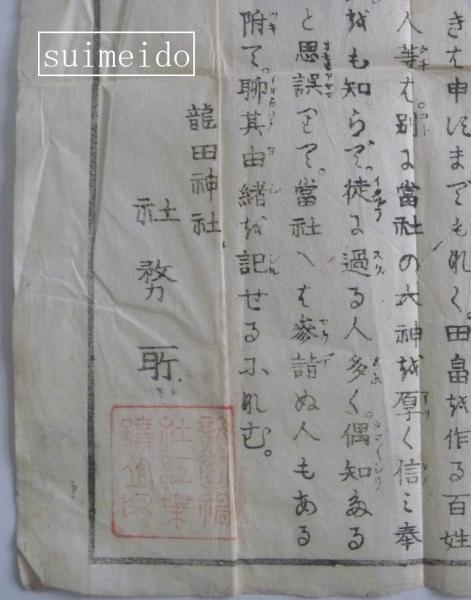 suimeido
きは申すまでもなく。田畠を作る百姓
人等は。別に當社の大神を厚く信ミ奉
をも知らで。徒に過る人多く。偶知たる
と思誤りて。當社へは參詣ぬ人もある
附て。聊其由緒を記せるになむ。
龍田神社
社務所